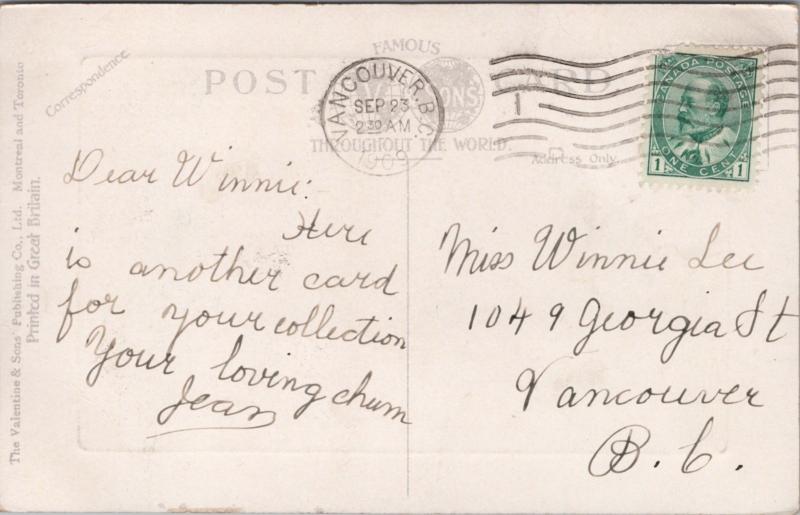 FAMOUS
POST CARD
SONS
THROUGHOUT THE WORLD.
Correspondence
Address Only
VANCOUVER, B.C.
SEP 23
2 30 AM
1909
1
CANADA POSTAGE
1 ONE CENT 1
Dear Winnie:
Here
is another card
for your collection
Your loving chum
Jean
Miss Winnie Lee
1049 Georgia St
Vancouver
B. C.
The Valentine & Sons' Publishing Co., Ltd. Montreal and Toronto
Printed in Great Britain.